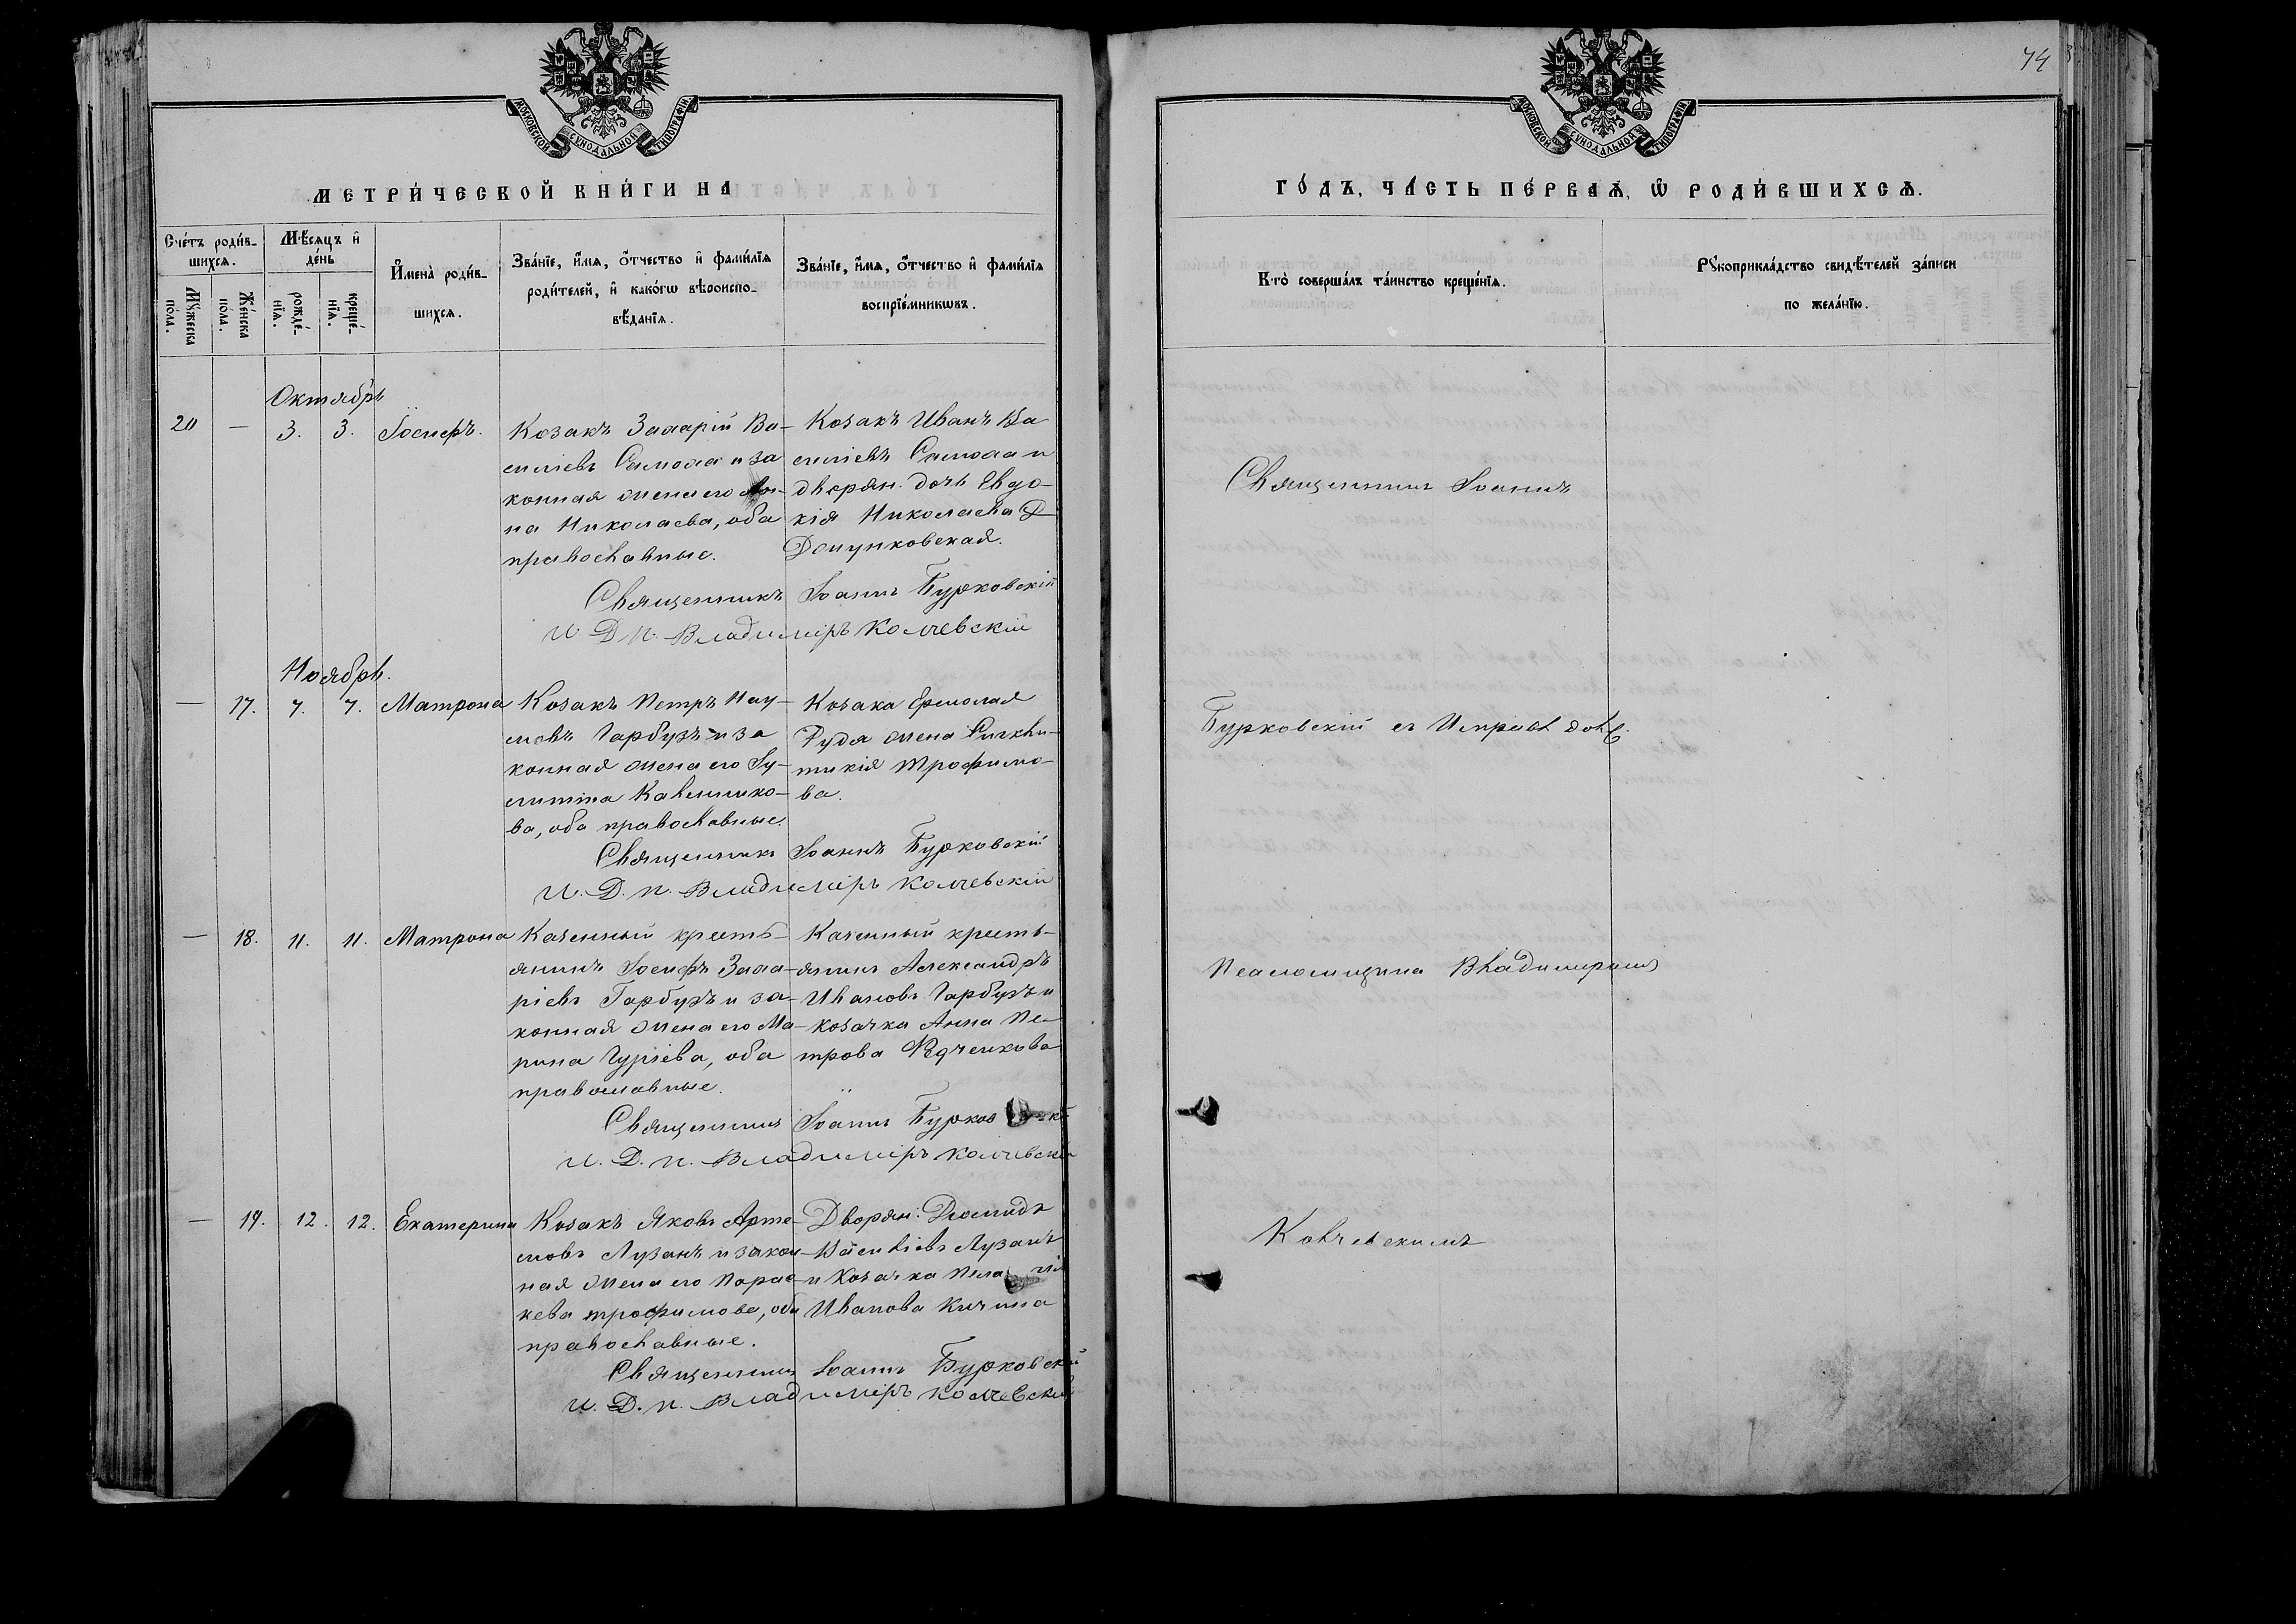 МОСКОВСКОЙ СѴНОДАЛЬНОЙ ТИПОГРАФІИ
МЕТРИ́ЧЕСКОЙ КНИ́ГИ НА
Сче́тъ роди́в-
шихсѧ.
Мѣ́сѧцъ и҆
де́нь
Мꙋ́жеска
по́ла.
Же́нска
по́ла.
рожде́-
нїѧ.
креще́-
нїѧ.
И҆мена̀ роди́в-
шихсѧ.
Зва́нїе, и҆́мѧ, ѻ҆́тчество и҆ фами́лїѧ
роди́телей, и҆ како́гѡ вѣроиспо-
вѣ́данїѧ.
Зва́нїе, и҆́мѧ, ѻ҆́тчество и҆ фами́лїѧ
воспрїе́мникѡвъ.
Октябрь
20 — 3. 3. Іосифъ.
Козакъ Захарій Ва-
силіевъ Самоха и за
конная жена его
на Николаева, оба
православные.
Козакъ Иванъ Ва
силіевъ Самоха и
дворян. дочь Евдо-
кія Николаева
Священникъ Іоаннъ Бурковскій
И. Д. П. Владиміръ Колчевскій
Ноябрь.
— 17. 7. 7. Матрона
Козакъ Петръ Нау-
мовъ Гарбузъ и за
конная жена его Іу-
литта
ва, оба православные.
Козака Ермолая
Рудя жена
тикія Трофимо-
ва.
Священникъ Іоаннъ Бурковскій
И. Д. П. Владиміръ Колчевскій
— 18. 11. 11. Матрона
Казенный кресть-
янинъ Іосифъ Заха-
ріевъ Гарбузъ и за-
конная жена его Ма-
рина Гуріева, оба
православные.
Казенный кресть-
янинъ Александръ
Ивановъ Гарбузъ и
козачка Анна Пе-
трова
Священникъ Іоаннъ Бурковскі
И. Д. П. Владиміръ Колчевскій
— 19. 12. 12. Екатерина
Козакъ Яковъ Арте-
мовъ Лузанъ и закон-
ная жена его Парас-
кева Трофимова, оба
православные.
Дворян: Діомидъ
Васильевъ Лузанъ
и козачка Пелагія
Иванова Кичина
Священникъ Іоаннъ Бурковскій
И. Д. П. Владиміръ Колчевскій
74
МОСКОВСКОЙ СѴНОДАЛЬНОЙ ТИПОГРАФІИ
ГО́ДЪ, ЧА́СТЬ ПЕ́РВАѦ, Ѡ҆ РОДИ́ВШИХСѦ.
Кто̀ соверша́лъ та́инство креще́нїѧ.
Рꙋкоприкла́дство свидѣ́телей за́писи
по жела́нїю.
Священникъ Іоаннъ
Бурковскій съ Исправ. дол.
Псаломщика Владиміромъ
Колчевскимъ